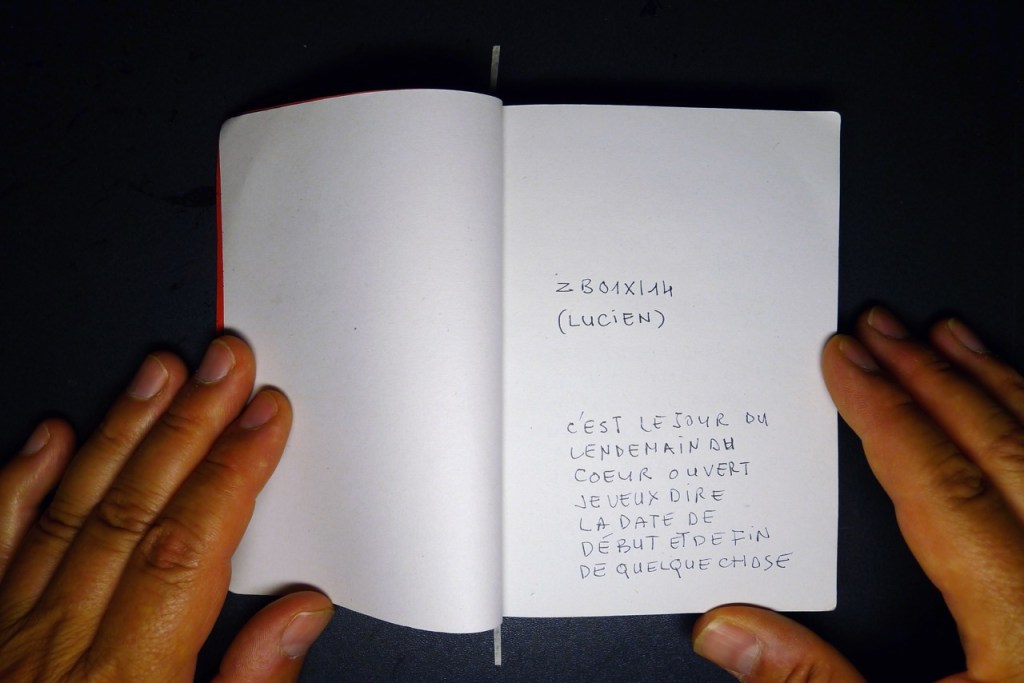 ZB01XI14
(LUCiEN)
C'EST LE JOUR DU
LENDEMAiN DU
COEUR OUVERT
JE VEUX DIRE
LA DATE DE
DÉBUT ET DE FiN
DE QUELQUE CHOSE